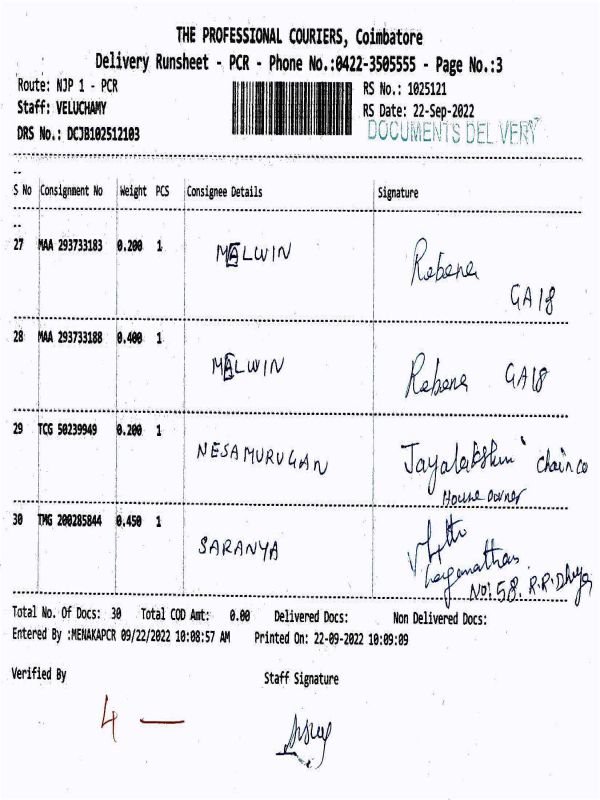 THE PROFESSIONAL COURIERS, Coimbatore
Delivery Runsheet - PCR - Phone No.:0422-3505555 - Page No.:3
Route: NJP 1 - PCR
RS No.: 1025121
Staff: VELUCHAMY
RS Date: 22-Sep-2022
DRS No.: DCJB102512103
DOCUMENTS DELIVERY
S No Consignment No Weight PCS Consignee Details Signature
27 MAA 293733183 0.200 1 MALWIN Rebena
GA18
28 MAA 293733188 0.400 1 MALWIN Rebena GA18
29 TCG 50239949 0.200 1 NESAMURUGAN Jayalakshmi chain co
House owner
30 TMG 200285844 0.450 1 SARANYA
No: 58. R.R.
Total No. Of Docs: 30 Total COD Amt: 0.00 Delivered Docs: Non Delivered Docs:
Entered By :MENAKAPCR 09/22/2022 10:08:57 AM Printed On: 22-09-2022 10:09:09
Verified By Staff Signature
4 —